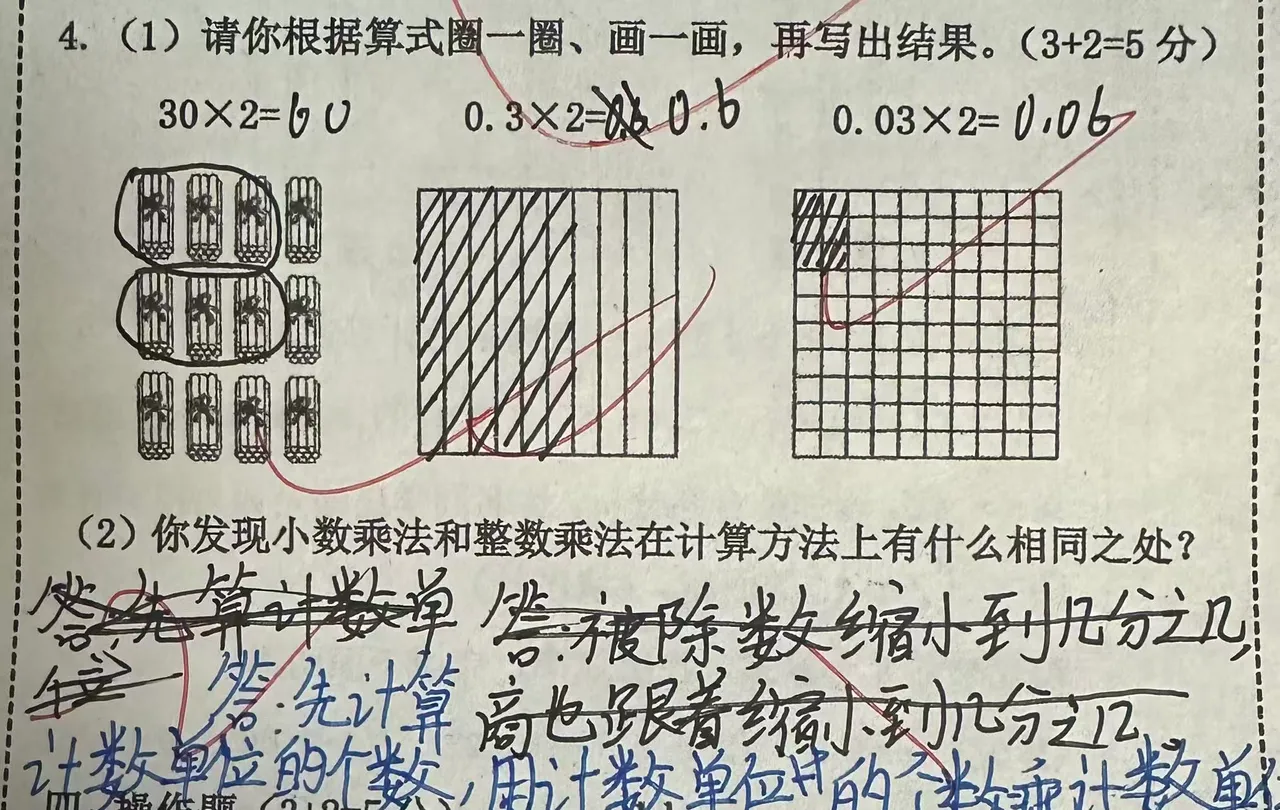 4.（1）请你根据算式圈一圈、画一画，再写出结果。（3+2=5 分）
30×2=60 0.3×2=0.6 0.03×2=0.06
（2）你发现小数乘法和整数乘法在计算方法上有什么相同之处？
答:先算计数单 答:被除数缩小到几分之几,
位 答:先计算 商也跟着缩小到几分之几
计数单位的个数,用计数单位的个数乘计数单
四、操作题（3+2=5 分）